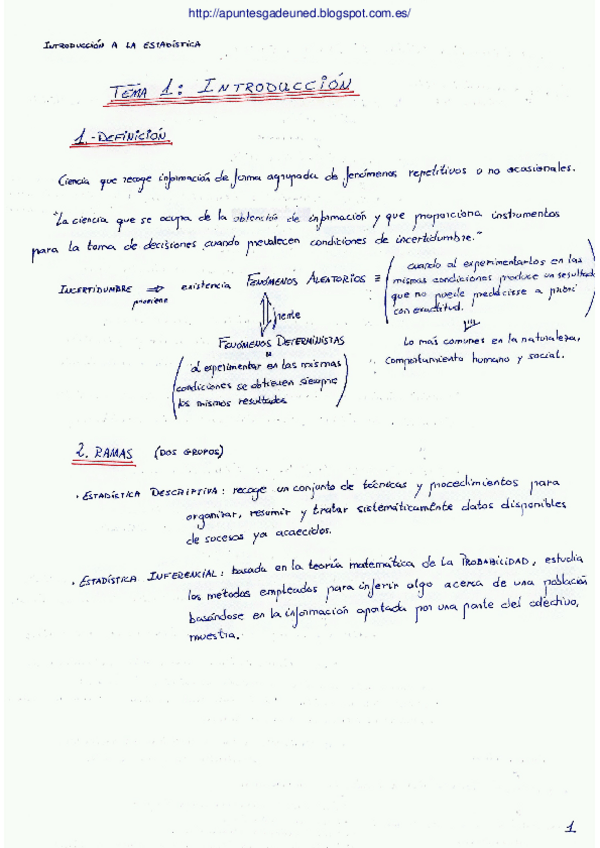 http://apuntesgadeuned.blogspot.com.es/
INTRODUCCIÓN A LA ESTADÍSTICA
TEMA 1: INTRODUCCIÓN
1.- DEFINICIÓN
Ciencia que recoge información de forma agrupada de fenómenos repetitivos o no ocasionales.
"La ciencia que se ocupa de la obtención de información y que proporciona instrumentos
para la toma de decisiones cuando prevalecen condiciones de incertidumbre."
INCERTIDUMBRE ⇒ existencia FENÓMENOS ALEATORIOS ≡
proviene
(cuando al experimentarlos en las
mismas condiciones produce un resultado
que no puede predecirse a priori
con exactitud.)
frente
Lo más comunes en la naturaleza,
comportamiento humano y social.
FENÓMENOS DETERMINISTAS
(al experimentar en las mismas
condiciones se obtienen siempre
los mismos resultados)
2. RAMAS (DOS GRUPOS)
· ESTADÍSTICA DESCRIPTIVA: recoge un conjunto de técnicas y procedimientos para
organizar, resumir y tratar sistemáticamente datos disponibles
de sucesos ya acaecidos.
· ESTADÍSTICA INFERENCIAL: basada en la teoría matemática de la PROBABILIDAD, estudia
los métodos empleados para inferir algo acerca de una población
basándose en la información aportada por una parte del colectivo,
muestra.
1